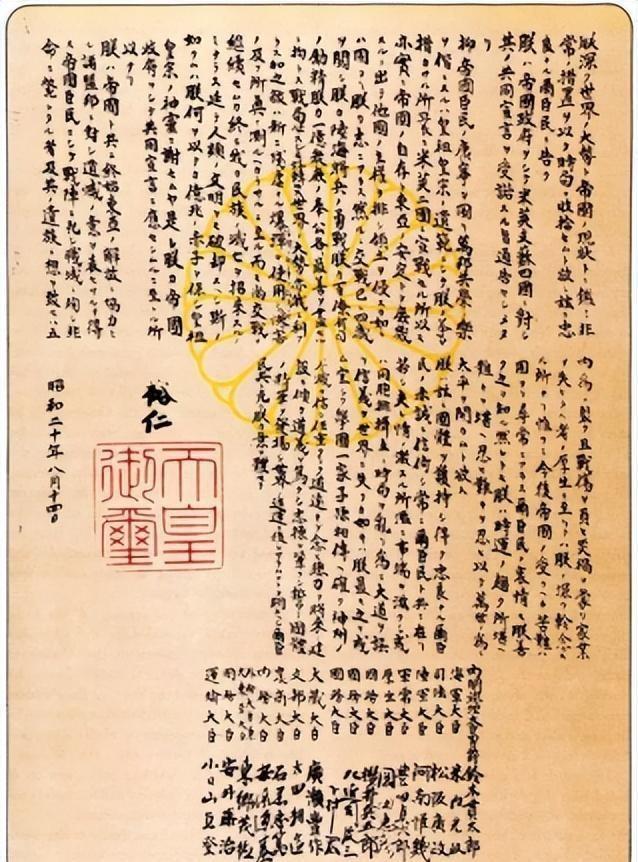 朕深ク世界ノ大勢ト帝國ノ現狀トニ鑑ミ非
常ノ措置ヲ以テ時局ヲ收拾セムト欲シ茲ニ忠
良ナル爾臣民ニ告ク
朕ハ帝國政府ヲシテ米英支蘇四國ニ對シ
其ノ共同宣言ヲ受諾スル旨通告セシメタ
リ
抑〻帝國臣民ノ康寧ヲ圖リ萬邦共榮ノ樂
ヲ偕ニスルハ皇祖皇宗ノ遺範ニシテ朕ノ拳々
措カサル所曩ニ米英二國ニ宣戰セル所以モ
亦實ニ帝國ノ自存ト東亞ノ安定トヲ庶幾
スルニ出テ他國ノ主權ヲ排シ領土ヲ侵スカ如
キハ固ヨリ朕カ志ニアラス然ルニ交戰已ニ四歲
ヲ閱シ朕カ陸海將兵ノ勇戰朕カ百僚有司
ノ勵精朕カ一億衆庶ノ奉公各〻最善ヲ盡セルニ
拘ラス戰局必スシモ好轉セス世界ノ大勢亦我ニ利アラ
ス加之敵ハ新ニ殘虐ナル爆彈ヲ使用シ慘害
ノ及フ所眞ニ測ルヘカラサルニ至ル而モ尚交戰ヲ
繼續セムカ終ニ我カ民族ノ滅亡ヲ招來スル
ノミナラス延テ人類ノ文明ヲモ破却スヘシ斯ノ
如クムハ朕何ヲ以テカ億兆ノ赤子ヲ保シ皇祖
皇宗ノ神靈ニ謝セムヤ是レ朕カ帝國
政府ヲシテ共同宣言ニ應セシムルニ至レル所
以ナリ
朕ハ帝國ト共ニ終始東亞ノ解放ニ協力セ
ル諸盟邦ニ對シ遺憾ノ意ヲ表セサルヲ得
ス帝國臣民ニシテ戰陣ニ死シ職域ニ殉シ非
命ニ斃レタル者及其ノ遺族ニ想ヲ致セハ五
內爲ニ裂ク且戰傷ヲ負ヒ災禍ヲ蒙リ家業
ヲ失ヒタル者ノ厚生ニ至リテハ朕ノ深ク軫念ス
ル所ナリ惟フニ今後帝國ノ受クヘキ苦難ハ
固ヨリ尋常ニアラス爾臣民ノ衷情モ朕善
ク之ヲ知ル然レトモ朕ハ時運ノ趨ク所堪ヘ
難キヲ堪ヘ忍ヒ難キヲ忍ヒ以テ萬世ノ爲ニ
太平ヲ開カムト欲ス
朕ハ茲ニ國體ヲ護持シ得テ忠良ナル爾臣
民ノ赤誠ニ信倚シ常ニ爾臣民ト共ニ在リ
若シ夫レ情ノ激スル所濫ニ事端ヲ滋クシ或ハ
同胞排擠互ニ時局ヲ亂リ爲ニ大道ヲ誤
リ信義ヲ世界ニ失フカ如キハ朕最モ之ヲ戒
ム宜シク擧國一家子孫相傳ヘ確ク神州ノ
不滅ヲ信シ任重クシテ道遠キヲ念ヒ總力ヲ將來ノ建
設ニ傾ケ道義ヲ篤クシ志操ヲ鞏クシ誓テ國體
ノ精華ヲ發揚シ世界ノ進運ニ後レサラムコトヲ期スヘシ爾臣
民其レ克ク朕カ意ヲ體セヨ
裕仁
天皇
御璽
昭和二十年八月十四日
內閣總理大臣男爵 鈴木貫太郎
海軍大臣 米內光政
司法大臣 松阪廣政
陸軍大臣 阿南惟幾
軍需大臣 豐田貞次郎
厚生大臣 岡田忠彥
國務大臣 櫻井兵五郎
國務大臣 左近司政三
國務大臣 下村宏
大藏大臣 廣瀨豐作
文部大臣 太田耕造
農商大臣 石黑忠篤
內務大臣 安倍源基
外務大臣兼大東亞大臣 東鄕茂德
國務大臣 安井藤治
運輸大臣 小日山直登